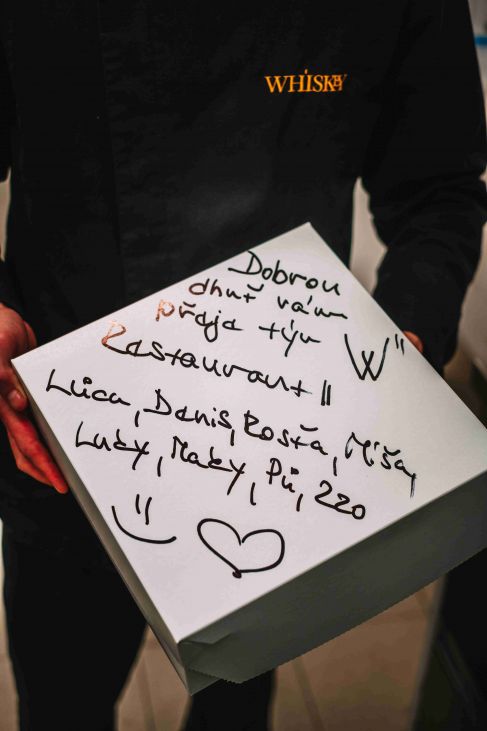 WHiSKEY
Dobrou
chuť vám
přeje tým
Restaurant " W "
Lúcia, Denis, Rosťa, Míša,
Luky, Maky, Pú,